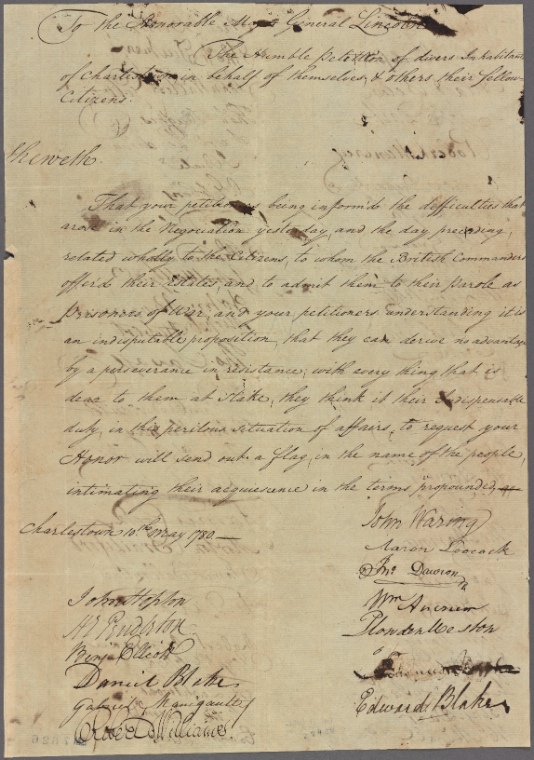 To the Honorable Major General Lincoln
The Humble Petition of divers Inhabitants
of Charlestown in behalf of themselves, & others their fellow
Citizens.
Sheweth.
That your petitioners being inform'd the difficulties that
arose in the Negociation yesterday, and the day preceding,
related wholly to the Citizens, to whom the British Commanders
offer'd their Estates, and to admit them to their parole as
Prisoners of War, and your petitioners understanding it is
an indisputable proposition, that they can derive no advantage
by a perseverance in resistance, with every thing that is
dear to them at Stake, they think it their Indispensable
duty, in this perilous situation of affairs, to request your
Honor will send out a flag, in the name of the people,
intimating their acquiescence in the terms propounded.
Charlestown 10th May 1780
John Waring
Aaron Loocock
Jno. Dawson
Wm
Plowden Weston
Edward Blake
John Hopton
Benja Elliott
Daniel Blake
Gabriel Manigault
Robert Williams